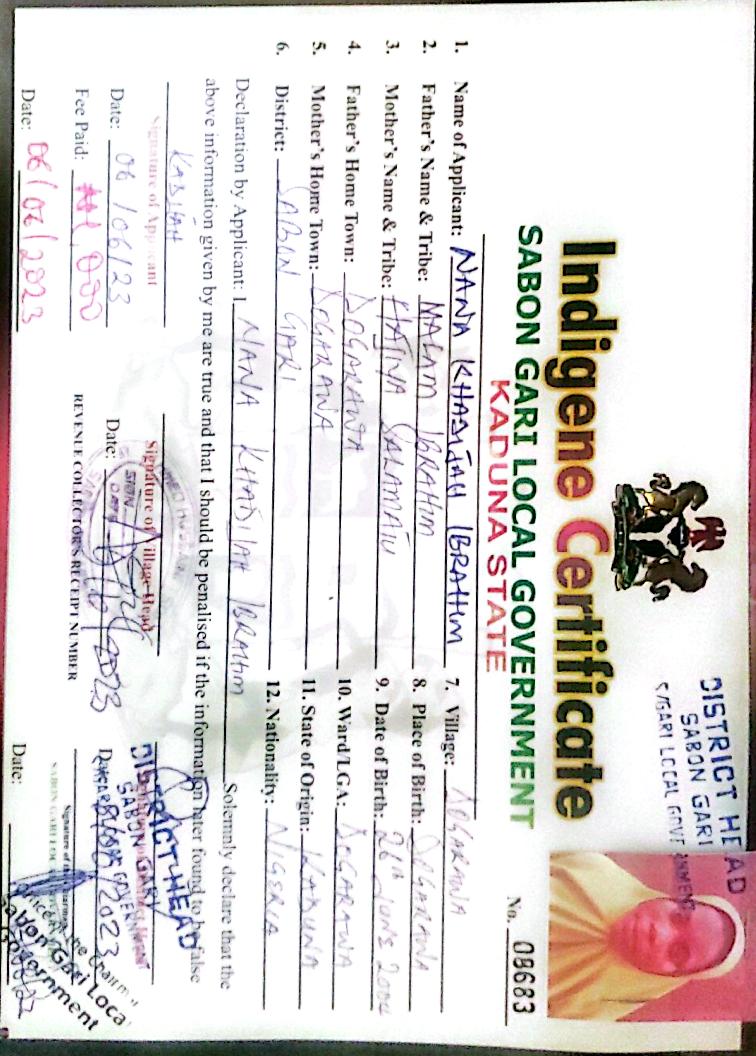 DISTRICT HEAD
SABON GARI
S/GARI LOCAL GOVERNMENT
Indigene Certificate
SABON GARI LOCAL GOVERNMENT
KADUNA STATE
No. 08683
1. Name of Applicant: NANA KHADIJAH IBRAHIM
2. Father's Name & Tribe: MALAM IBRAHIM
3. Mother's Name & Tribe: HAJIYA SALAMATU
4. Father's Home Town: DOGARAWA
5. Mother's Home Town: DOGARAWA
6. District: SABON GARI
7. Village: DOGARAWA
8. Place of Birth: DOGARAWA
9. Date of Birth: 26th JUNE 2004
10. Ward/LGA: DOGARAWA
11. State of Origin: KADUNA
12. Nationality: NIGERIA
Declaration by Applicant: I NANA KHADIJAH IBRAHIM Solemnly declare that the
above information given by me are true and that I should be penalised if the information later found to be false
Signature of Applicant
Date: 06/06/23
Fee Paid:
Date: 06/06/2023
Signature of Village Head
SIGN
DATE
Date:
REVENUE COLLECTOR'S RECEIPT NUMBER
DISTRICT HEAD
SABON GARI
Date:
Office of the Chairman
Sabon Gari Local
Government